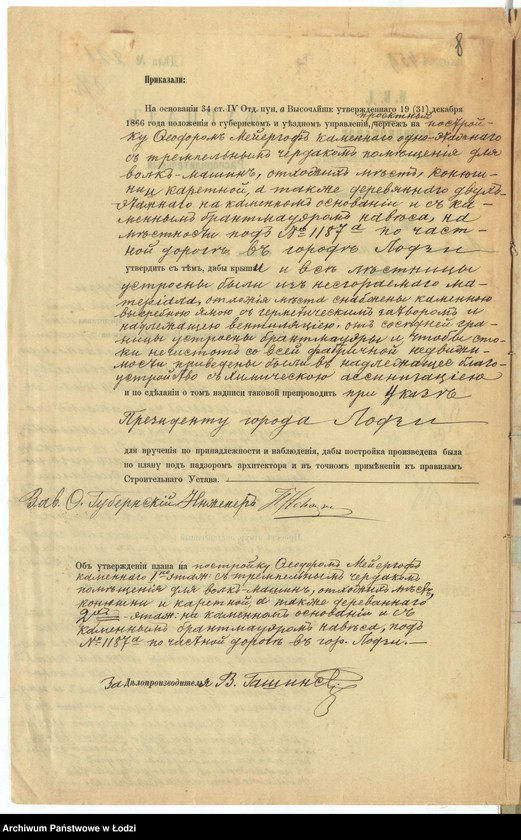 8
Приказали:
На основаніи 34 ст. IV Отд. пун. а Высочайше утвержденнаго 19 (31) декабря
1866 года положенія о губернскомъ и уѣздномъ управленіи, проектный чертежъ на построй-
ку Ѳеодоромъ Мейергофъ каменнаго одно-этажнаго
съ тремпельнымъ чердакомъ помѣщенія для
волкъ-машинъ, отхожихъ мѣстъ, конюш-
ни и каретной, а также деревяннаго двухъ-
этажнаго на каменномъ основаніи и съ ка-
меннымъ брантмауромъ навѣса, на
мѣстности подъ № 1187а по част-
ной дорогѣ въ городѣ Лодзи
утвердить съ тѣмъ, дабы крыши и всѣ лѣстницы
устроены были изъ несгораемаго ма-
теріала, отхожія мѣста снабжены каменною
выгребною ямою съ герметическимъ затворомъ и
надлежащею вентиляціею, отъ сосѣдней гра-
ницы устроены брантмауры и чтобы сто-
ки нечистотъ со всей фабричной недвижи-
мости приведены были въ надлежащее благо-
устройство съ химическою ассенизаціею
и по сдѣланіи о томъ надписи таковой препроводить при Указѣ
Президенту города Лодзи
для врученія по принадлежности и наблюденія, дабы постройка произведена была
по плану подъ надзоромъ архитектора и въ точномъ примѣненіи къ правиламъ
Строительнаго Устава.
Зав. О. Губернскій Инженеръ
Объ утвержденіи плана на постройку Ѳеодоромъ Мейергофъ
каменнаго 1но этаж. съ тремпельнымъ чердакомъ
помѣщенія для волкъ-машинъ, отхожихъ мѣстъ,
конюшни и каретной а также деревяннаго,
2хъ-этаж. на каменномъ основаніи и съ
каменнымъ брантмауромъ навѣса, подъ
№ 1187а по частной дорогѣ въ гор. Лодзи.
За Дѣлопроизводителя В. Гашинс
Archiwum Państwowe w Łodzi